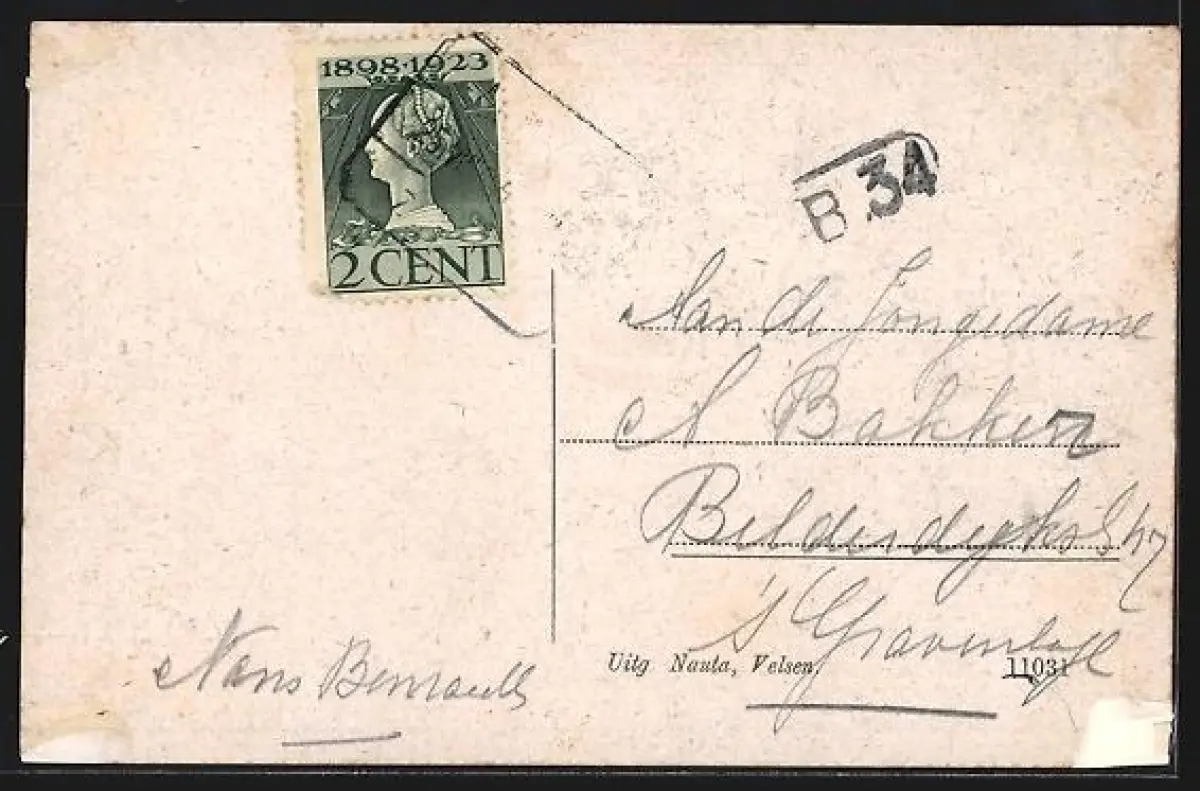 1898·1923
2 CENT
B.34
Aan de Jongedame
A Bakker
Bilderdijkstr
's Gravenhage
Nans
Uitg Nauta, Velsen.
11031